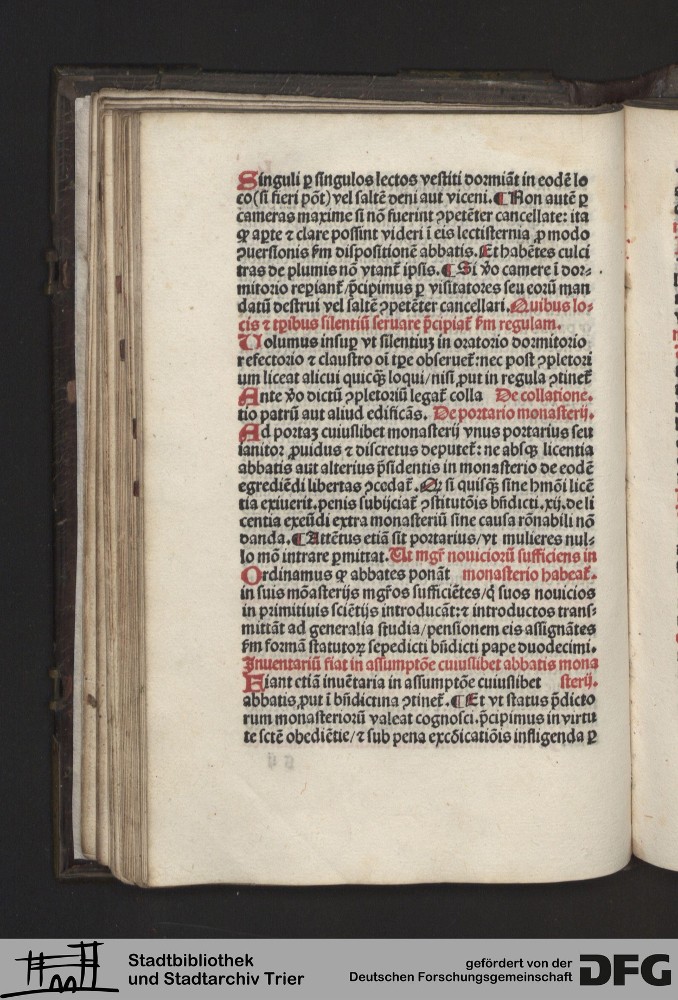 Singuli ꝑ singulos lectos vestiti dormiãt in eodẽ lo
co (si fieri põt) vel saltẽ deni aut viceni. ¶ Non autẽ ꝑ
cameras maxime si nõ fuerint ꝯpetẽter cancellate: ita
ꝙ aꝑte ⁊ clare possint videri ĩ eis lectisternia ꝓ modo
ꝯuersionis ẜm dispositionẽ abbatis. Et habẽtes culci
tras de plumis nõ vtant᷒ ipsis. ¶ Si v̾o camere ĩ dor⸗
mitorio reꝑiant᷒/p̃cipimus ꝑ visitatores seu eorũ man
datũ destrui vel saltẽ ꝯpetẽter cancellari. Quibus lo⸗
cis ⁊ tꝑibus silentiũ seruare p̃cipiat᷒ ẜm regulam.
Volumus insuꝑ vt silentiuȝ in oratorio dormitorio
refectorio ⁊ claustro oĩ tꝑe obseruet᷒: nec post ꝯpletori
um liceat alicui quicꝙ̃ loqui/nisi ꝓut in regula ꝯtinet᷒
Ante v̾o dictũ ꝯpletoriũ legat᷒ colla De collatione.
tio patrũ aut aliud edificãs. De portario monasterij.
Ad portaȝ cuiuslibet monasterij vnus portarius seu
ianitor ꝓuidus ⁊ discretus deputet᷒: ne absqȝ licentia
abbatis aut alterius p̃sidentis in monasterio de eodẽ
egrediẽdi libertas ꝯcedat᷒. Qȝ si quisꝙ̃ sine hmõi licẽ
tia exiuerit. penis subijciat᷒ ꝯstitutõis bñdicti. xij. de li
centia exeũdi extra monasteriũ sine causa rõnabili nõ
danda. ¶ Attẽtus etiã sit portarius/vt mulieres nul⸗
lo mõ intrare ꝑmittat. Ut mgr̃ nouiciorũ sufficiens in
Ordinamus ꝙ abbates ponãt monasterio habeat᷒.
in suis mõasterijs mgr̃os sufficiẽtes/q̃ suos nouicios
in primitiuis sciẽtijs introducãt: ⁊ introductos trans⸗
mittãt ad generalia studia/pensionem eis assignãtes
ẜm formã statutoꝝ sepedicti bñdicti pape duodecimi.
Inuentariũ fiat in assumptõe cuiuslibet abbatis mona
Fiant etiã inuẽtaria in assumptõe cuiuslibet sterij.
abbatis ꝓut ĩ bñdictina ꝯtinet᷒. ¶ Et vt status p̃dicto
rum monasteriorũ valeat cognosci. p̃cipimus in virtu
te sctẽ obediẽtie/⁊ sub pena excõicatiõis infligenda ꝑ
Stadtbibliothek
und Stadtarchiv Trier
gefördert von der
Deutschen Forschungsgemeinschaft
DFG